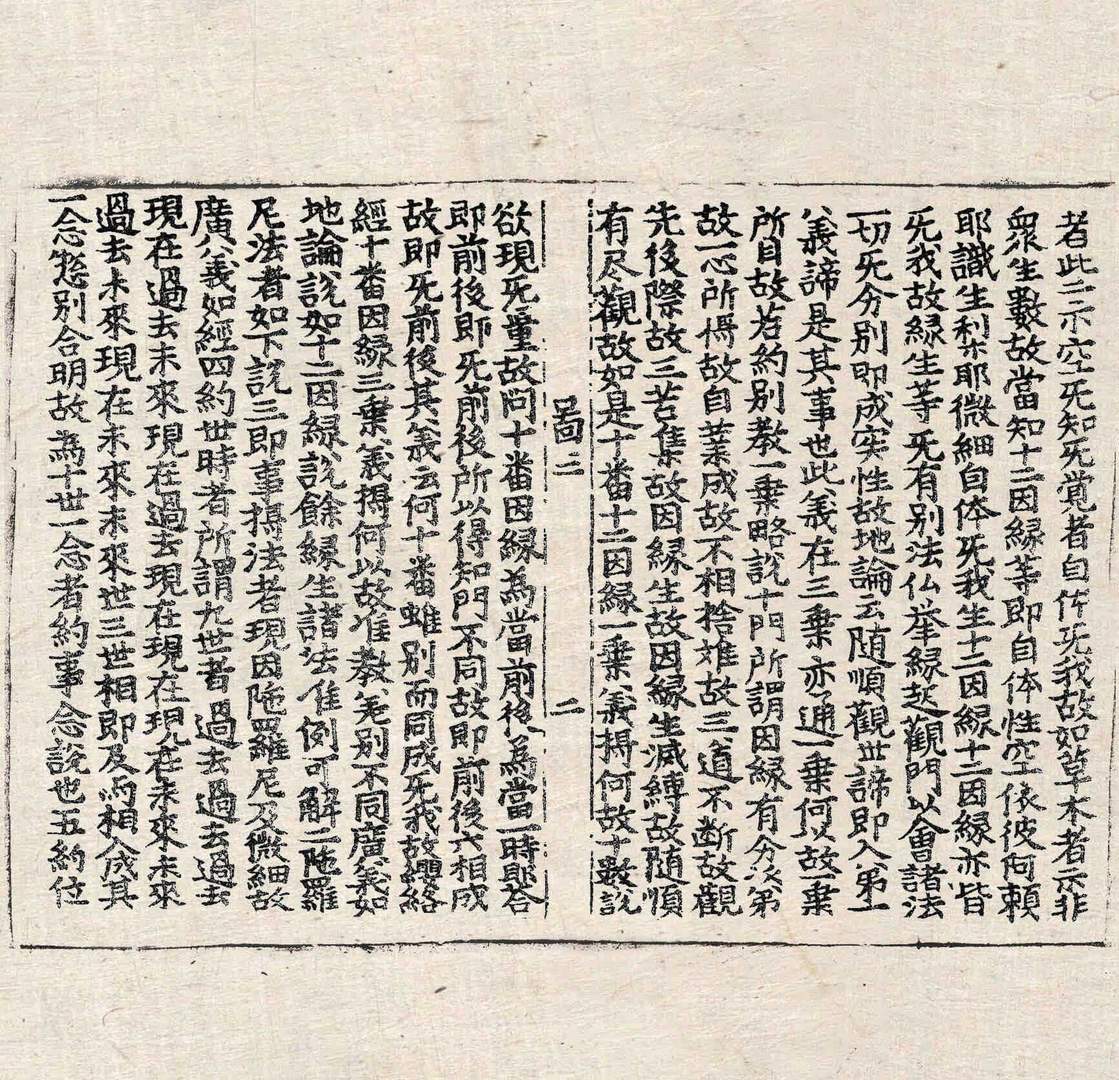 者此二示空无知无覚者自体无我故如草木者示非
衆生數故當知十二因縁等即自体性空依彼阿頼
耶識生利梨耶微細自体无我生十二因縁十二因縁亦皆
无我故縁生等无有别法仏举縁起觀門以會諸法
一切无分别即成实性故地論云随順觀世諦即入第一
義諦是其事也此義在三乗亦通一乗何以故一乗
所目故若約别教一乗略說十門所謂因縁有分次第
故一心所攝故自業成故不相捨離故三道不断故觀
先後際故三苦集故因縁生故因縁生滅縛故随順
有尽觀故如是十番十二因縁一乗義攝何故十數說
啚二
二
欲現无量故問十番因縁為當前後為當一時耶答
即前後即无前後所以得知門不同故即前後六相成
故即无前後其義云何十番雖别而同成无我故瓔絡
經十番因縁三乗義攝何以故准教義差别不同廣義如
地論說如十二因縁說餘縁生諸法准例可解二陁羅
尼法者如下說三即事攝法者現因陁羅尼及微細故
廣義如經四約世時者所謂九世者過去過去過去
現在過去未來現在過去現在現在現在未來未來
過去未來現在未來未來世三世相即及為相入成其
一念惣别合明故為十世一念者約事念說也五約位